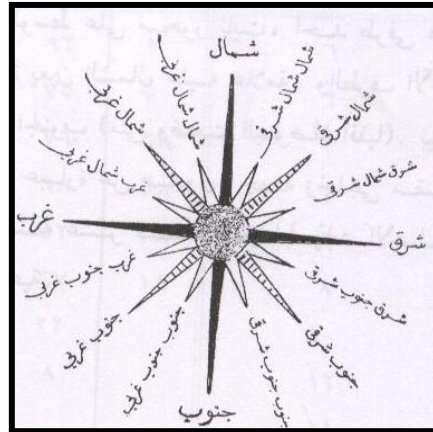 شمال
شمال شمال شرقي
شمال شرقي
شرق شمال شرق
شرق
شرق جنوب شرق
جنوب شرقي
جنوب جنوب شرقي
جنوب
جنوب جنوب غربي
جنوب غربي
غرب جنوب غربي
غرب
غرب شمال غربي
شمال غربي
شمال شمال غربي